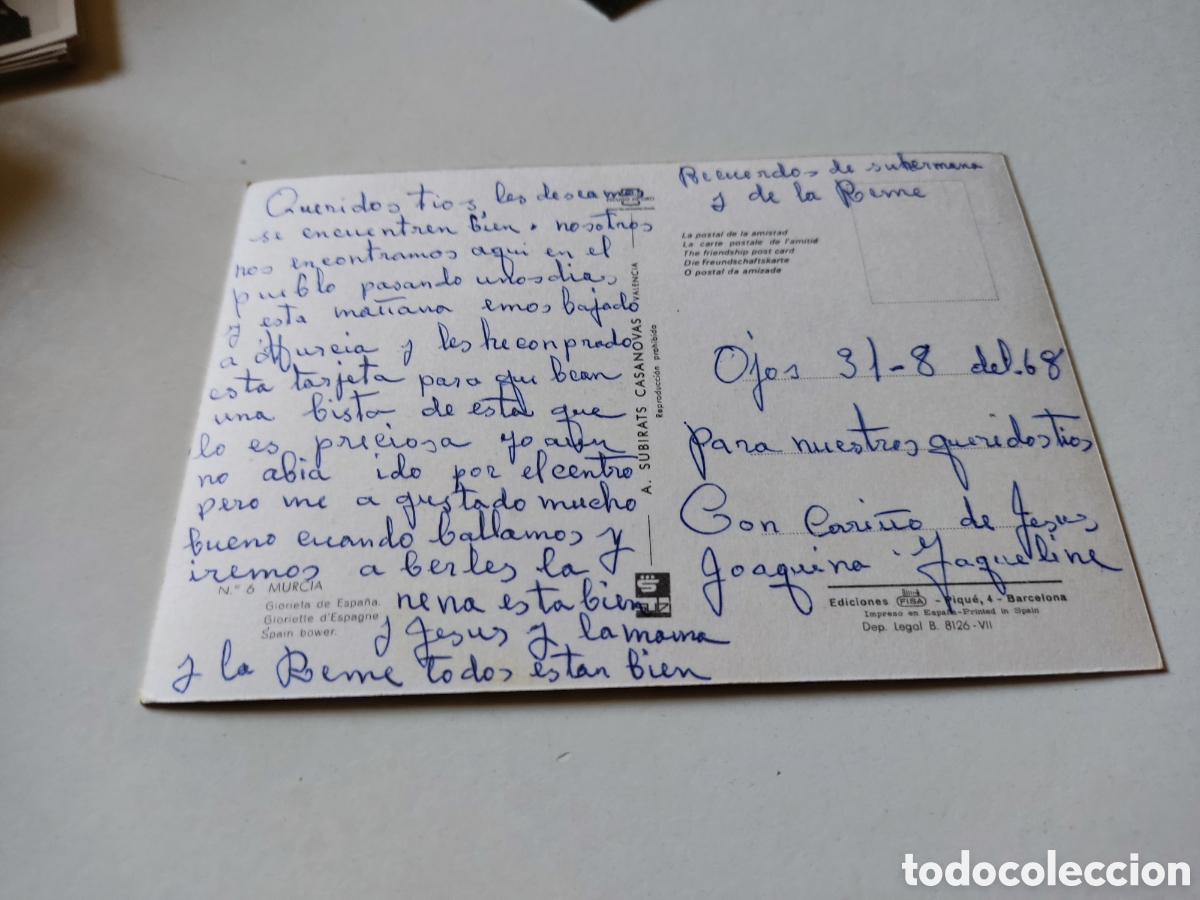 Queridos tios les deseamos
se encuentren bien. nosotros
nos encontramos aqui en el
pueblo pasando unos dias
y esta mañana emos bajado
a Murcia y les he conprado
esta tarjeta para que bean
una bista de esta que
lo es preciosa yo aun
no abia ido por el centro
pero me a gustado mucho
bueno cuando ballamos y
iremos a berles la
nena esta bien
y Jesus y la mama
y la Reme todos estan bien
N.º 6 MURCIA
Glorieta de España.
Gloriette d'Espagne
Spain bower.
A. SUBIRATS CASANOVAS VALENCIA
Reproducción prohibida
Recuerdos de su hermana
y de la Reme
La postal de la amistad
La carte postale de l'amitié
The friendship post card
Die freundschaftskarte
O postal da amizade
Ojos 31-8 del.68
para nuestros queridos tios
Con Cariño de Jesus
Joaquina Jaqueline
Ediciones FISA - Piqué, 4 - Barcelona
Impreso en España-Printed in Spain
Dep. Legal B. 8126-VII
todocoleccion